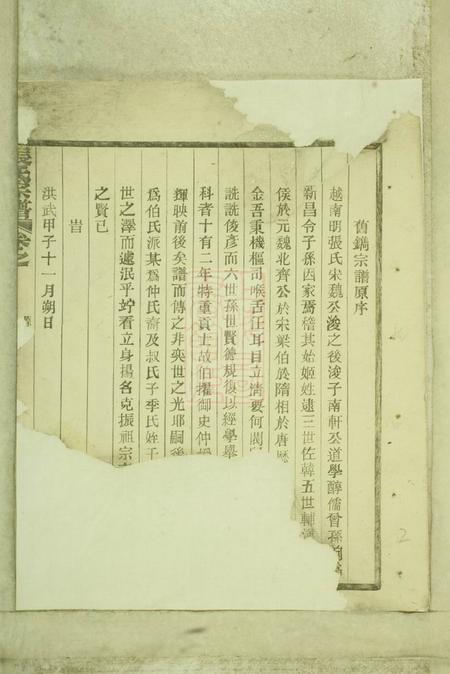 舊鐫宗譜原序
越南明張氏宋魏公浚之後浚子南軒公道學醇儒曾孫
新昌令子孫因家焉僭其始姬姓逮三世佐韓五世輔漢
侯於元魏北齊公於宋梁伯於隋相於唐歷
金吾秉機樞司喉舌任耳目立清要何閥閱
詵詵俊彥而六世孫世賢德規復以經學舉
科者十有二年特重貢士故伯擢御史仲
輝映前後矣譜而傳之非奕世之光耶嗣後
為伯氏派某為仲氏裔及叔氏子季氏姪子
世之澤而遽泯乎竚看立身揚名克振祖宗
之賢已
旹
洪武甲子十一月朔日
張氏宗譜 卷之